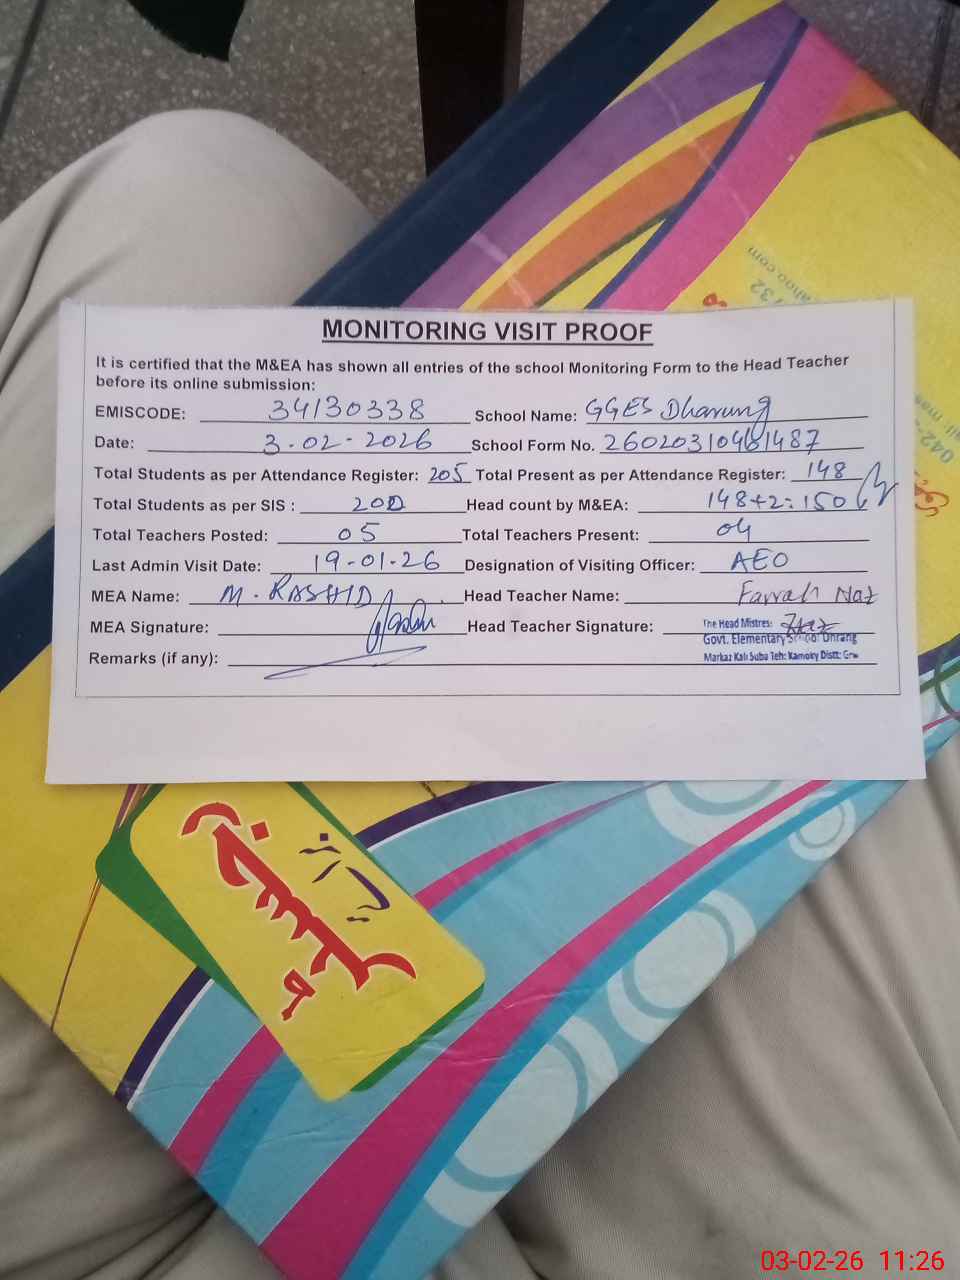 MONITORING VISIT PROOF
It is certified that the M&EA has shown all entries of the school Monitoring Form to the Head Teacher
before its online submission:
EMISCODE: 34130338 School Name: GGES Dharung
Date: 3-02-2026 School Form No.
Total Students as per Attendance Register: 205 Total Present as per Attendance Register: 148
Total Students as per SIS : 200 Head count by M&EA: 148+2=150
Total Teachers Posted: 05 Total Teachers Present: 04
Last Admin Visit Date: 19-01-26 Designation of Visiting Officer: AEO
MEA Name: M. RASHID Head Teacher Name: Farrah Naz
MEA Signature: Head Teacher Signature: The Head Mistres:
Govt. Elementary School Dhrang
Remarks (if any): Markaz Kali Suba Teh: Kamoky Distt: Grw
ahoo.com
732
042-
رجسٹر
03-02-26 11:26